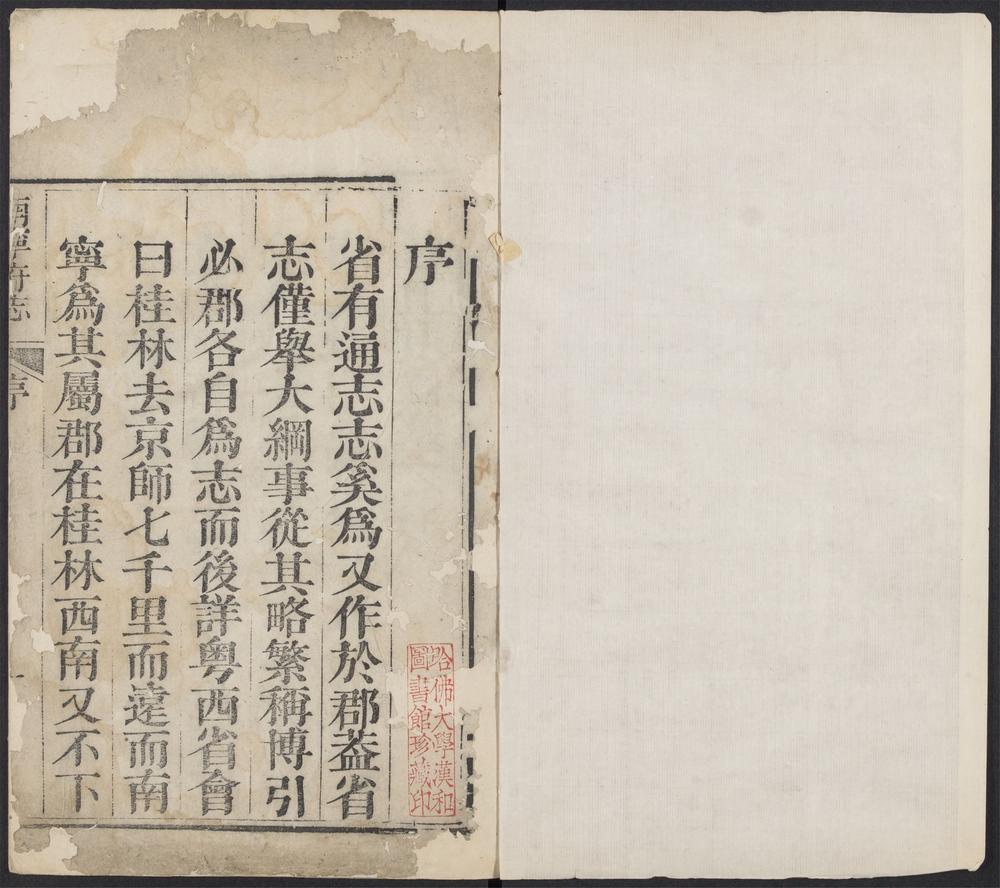 序
省有通志志奚爲又作於郡葢省
志僅舉大綱事從其略繁稱博引
必郡各自爲志而後詳粤西省會
曰桂林去京師七千里而遠而南
寧爲其屬郡在桂林西南又不下
南寧府志
序
哈佛大學漢和
圖書館珍藏印